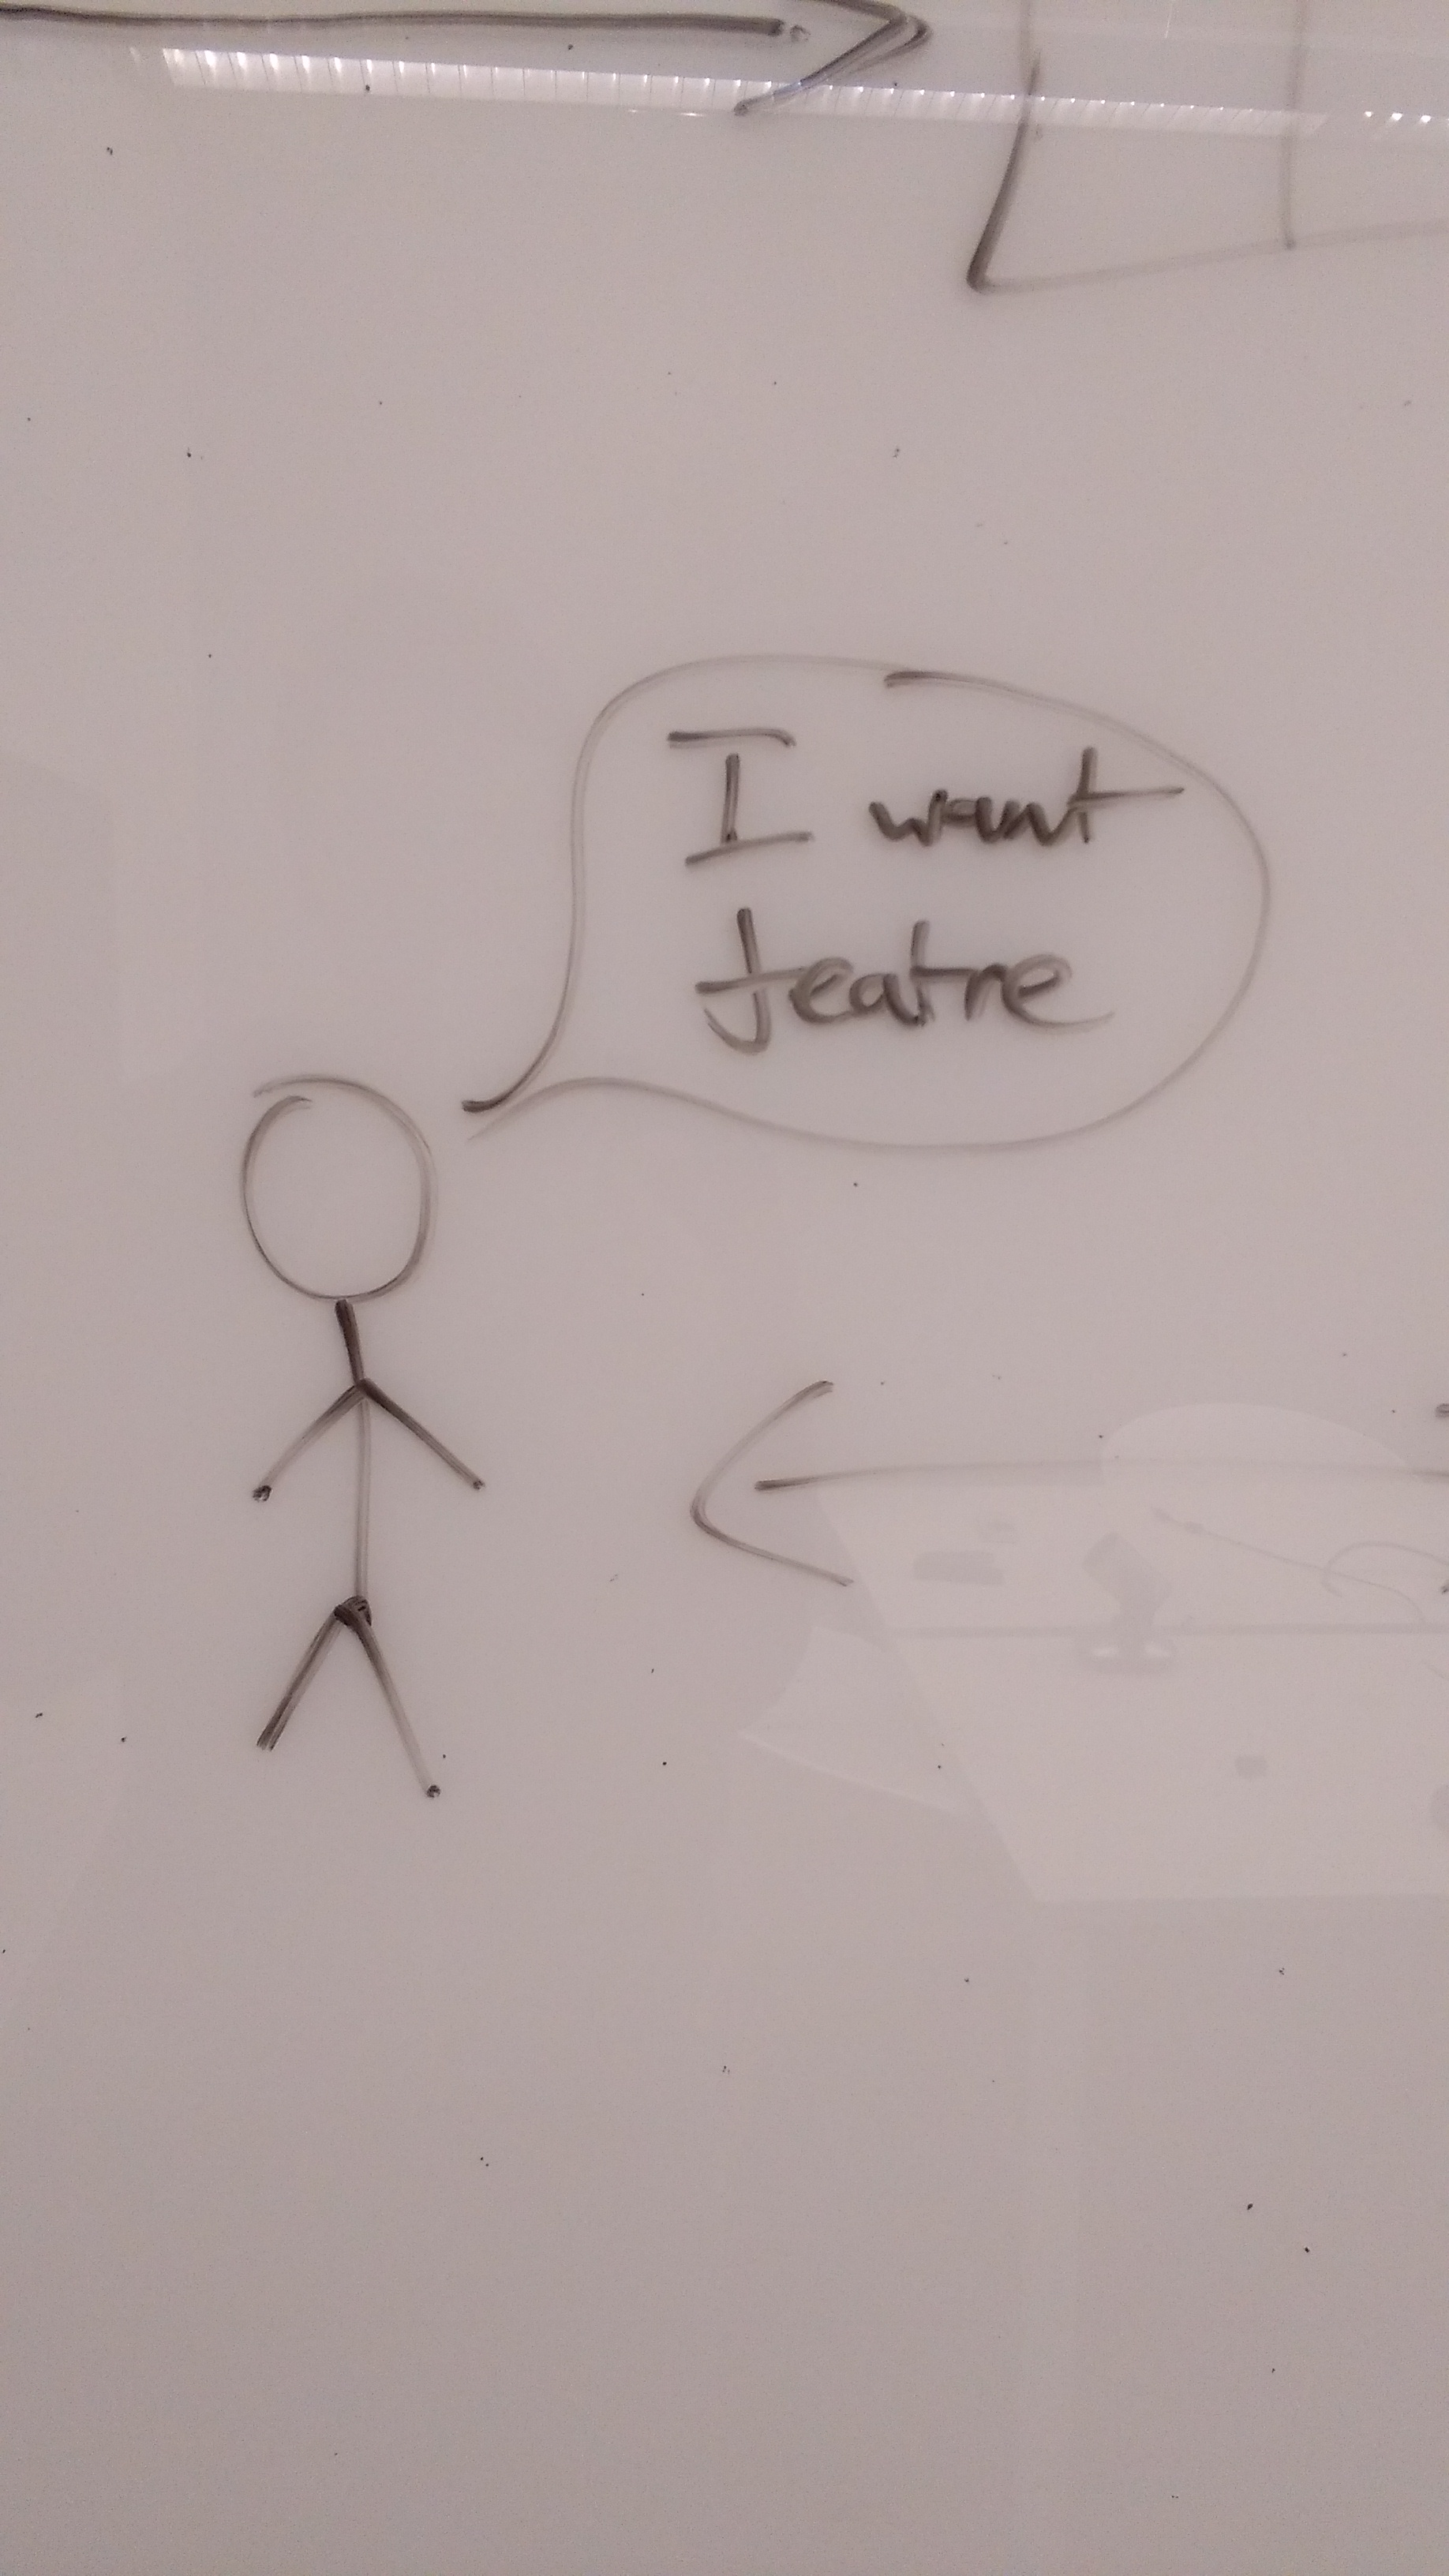 I want
teatre